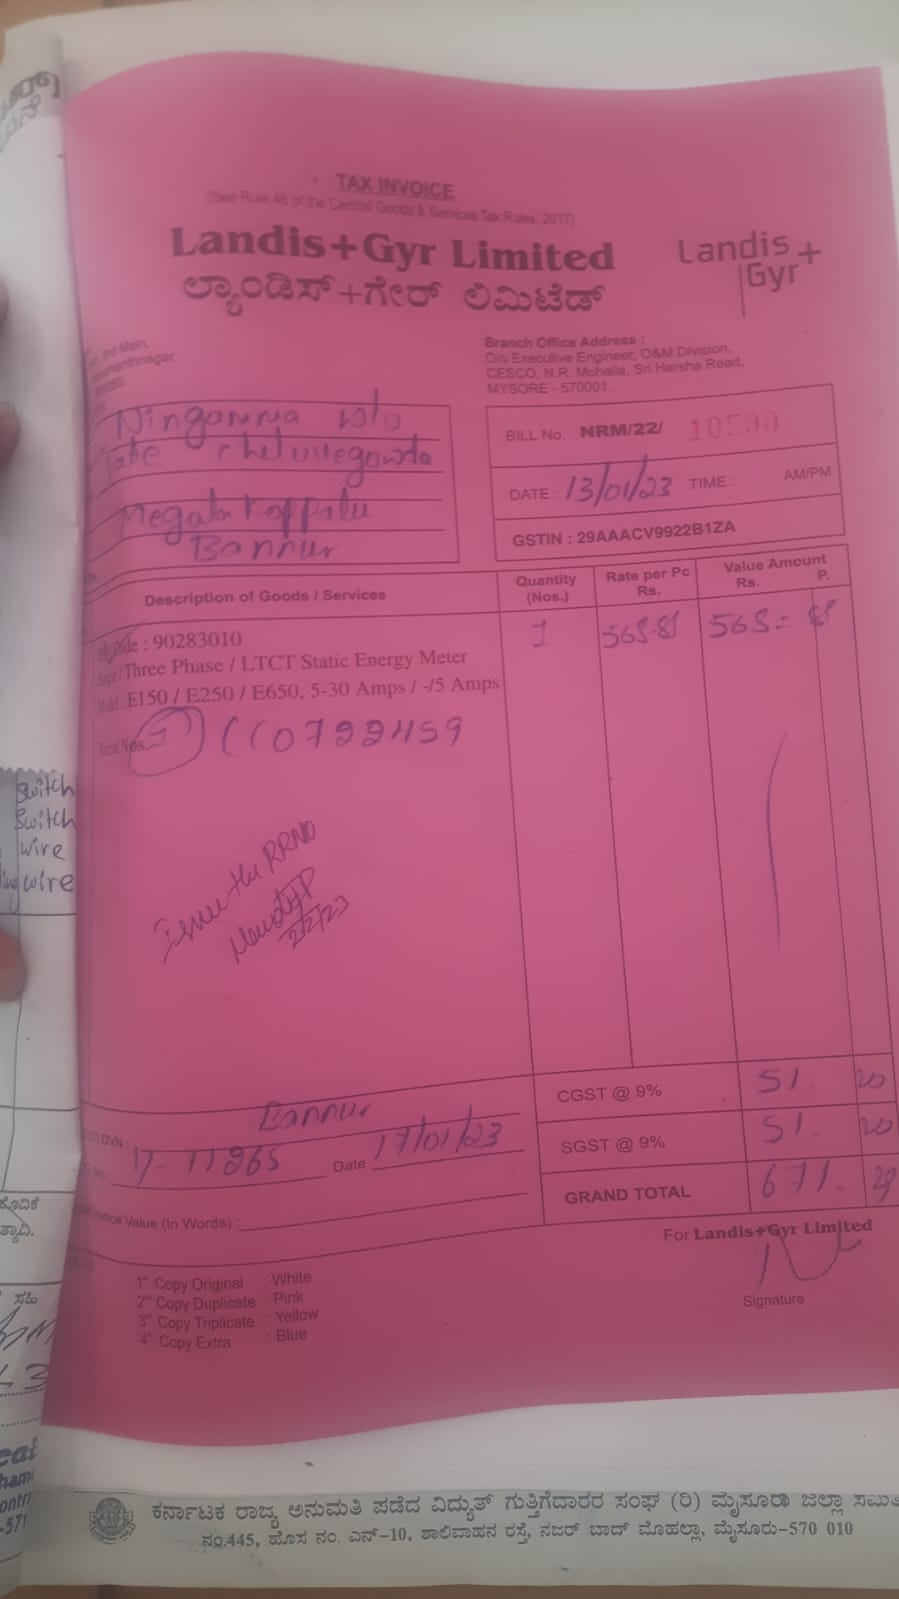 TAX INVOICE
(See Rule 46 of the Central Goods & Services Tax Rules, 2017)
Landis+Gyr Limited
ಲ್ಯಾಂಡಿಸ್+ಗೇರ್ ಲಿಮಿಟೆಡ್
Landis+
Gyr
3rd Main,
Branch Office Address :
O/o Executive Engineer, O&M Division,
CESCO, N.R. Mohalla, Sri Harsha Road,
MYSORE - 570001.
Ninganna w/o
late cheluvegowda
Megala koppalu
Bannur
BILL No. NRM/22/ 10590
DATE : 13/01/23 TIME : AM/PM
GSTIN : 29AAACV9922B1ZA
Description of Goods / Services
Quantity (Nos.)
Rate per Pc Rs.
Value Amount
Rs. P.
Code : 90283010
Single/Three Phase / LTCT Static Energy Meter
Model : E150 / E250 / E650, 5-30 Amps / -/5 Amps
1 568-81 568=81
Serial Nos.
Issue the RRNO
2/2/23
switch
switch
wire
wire
CGST @ 9% 51. 20
SGST @ 9% 51. 20
GRAND TOTAL 671.
DVN : Bannur
17-11865 Date 17/01/23
Invoice Value (In Words) :
For Landis+Gyr Limited
Signature
1st Copy Original : White
2nd Copy Duplicate : Pink
3rd Copy Triplicate : Yellow
4th Copy Extra : Blue
ಸಹಿ
ಕರ್ನಾಟಕ ರಾಜ್ಯ ಅನುಮತಿ ಪಡೆದ ವಿದ್ಯುತ್ ಗುತ್ತಿಗೆದಾರರ ಸಂಘ (ರಿ) ಮೈಸೂರು ಜಿಲ್ಲಾ ಸಮಿತಿ
ನಂ.445, ಹೊಸ ನಂ. ಎನ್-10, ಶಾಲಿವಾಹನ ರಸ್ತೆ, ನಜರ್ ಬಾದ್ ಮೊಹಲ್ಲಾ, ಮೈಸೂರು-570 010